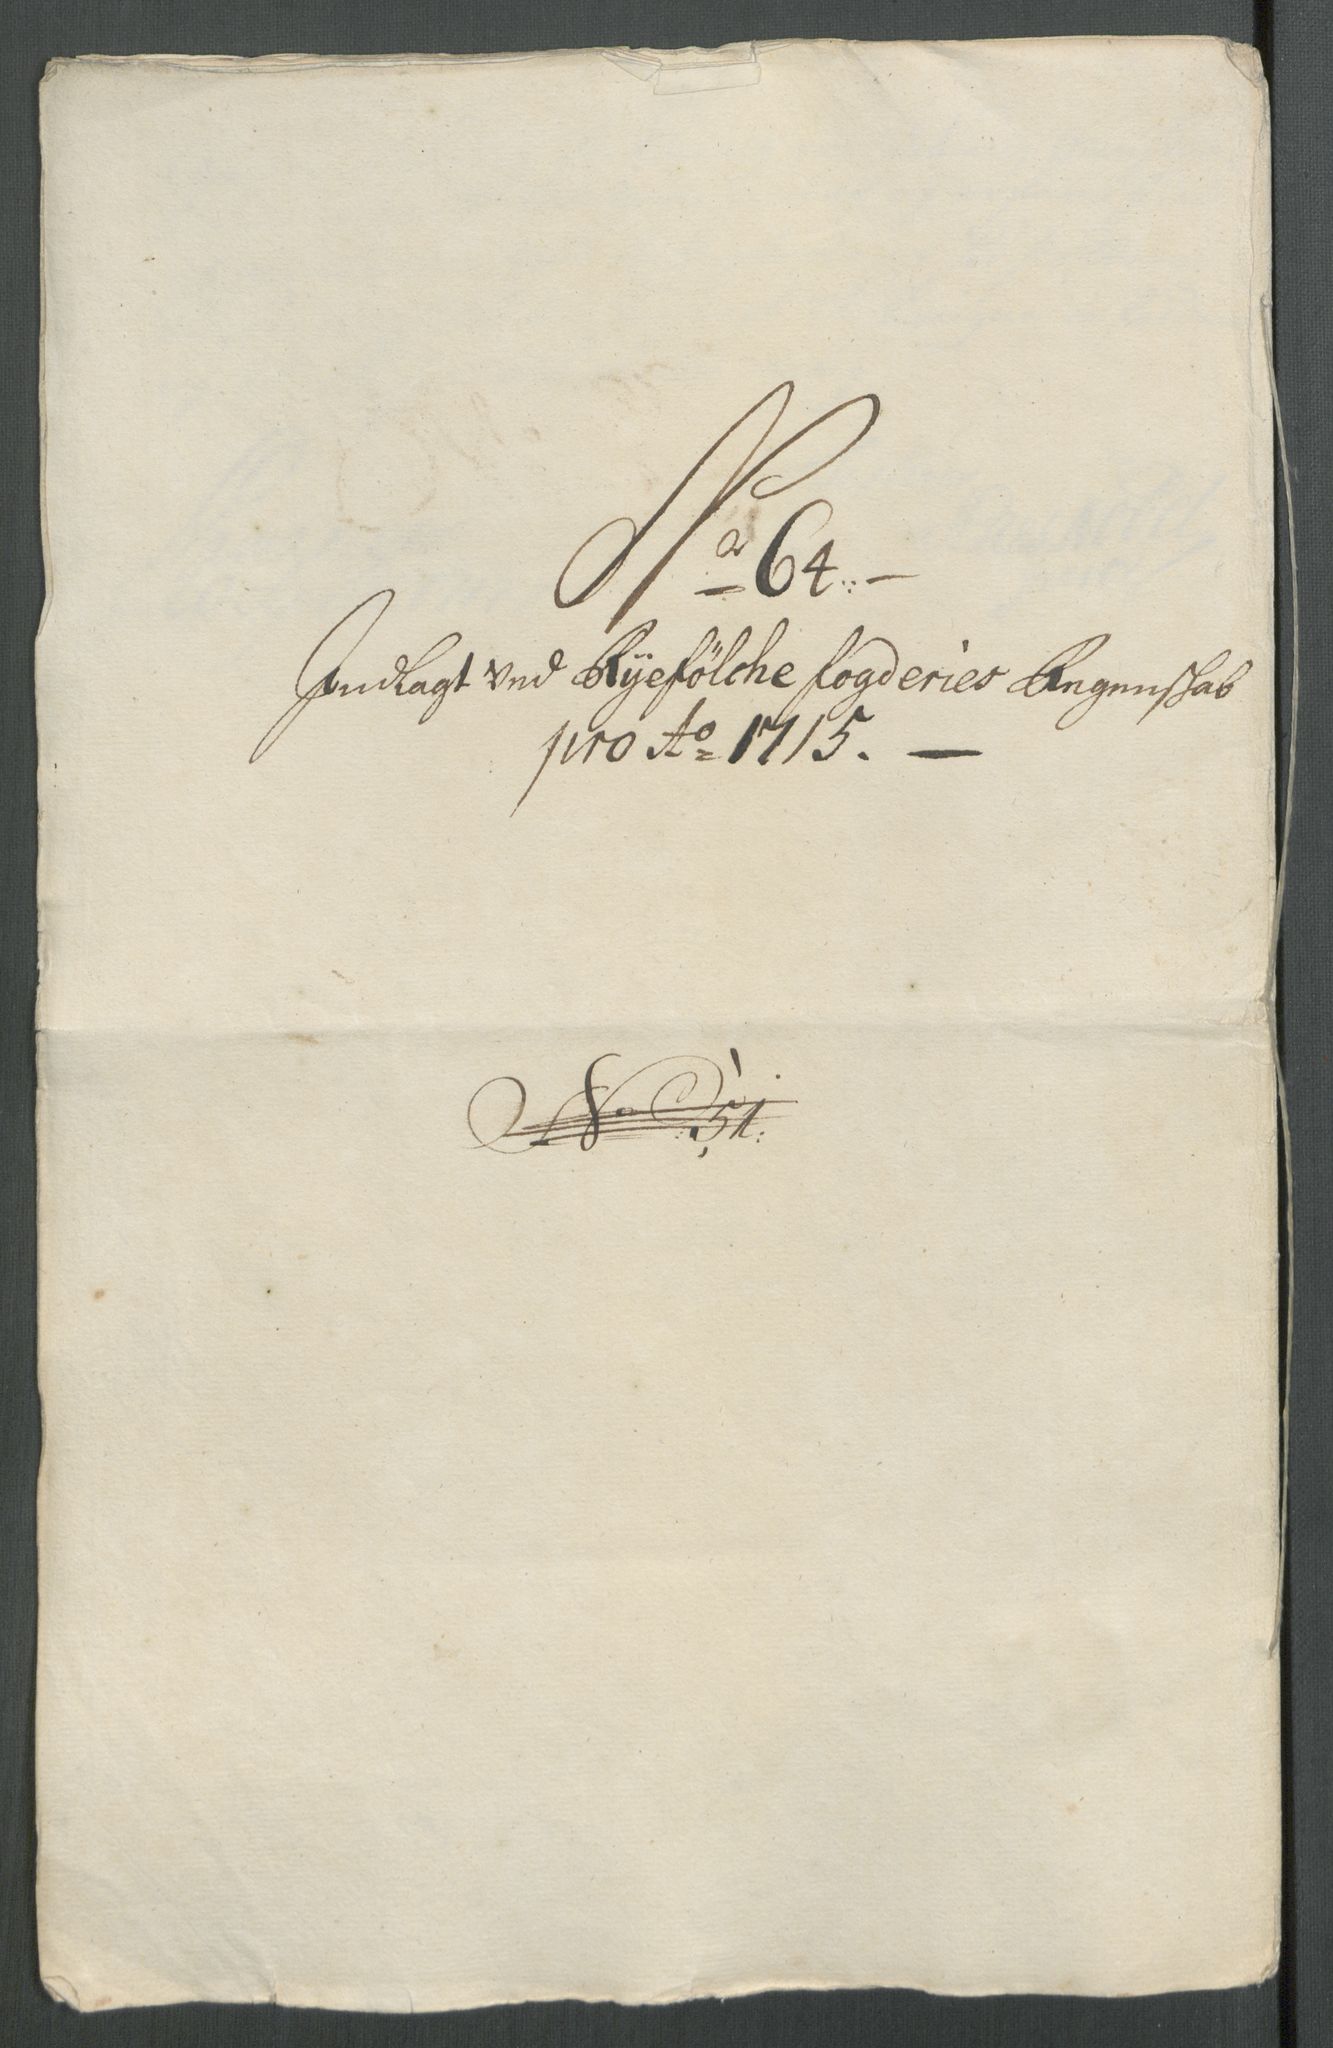 No 64.
Indlagt ved Ryefölche fogderies Regenskab
pro Ao 1715.
No 51.